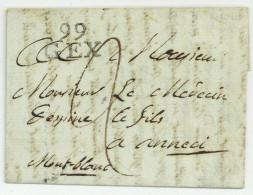 99
GEX
a Monsieur
Monsieur Le Médecin
Despine le fils
a anneci
Mont-blanc